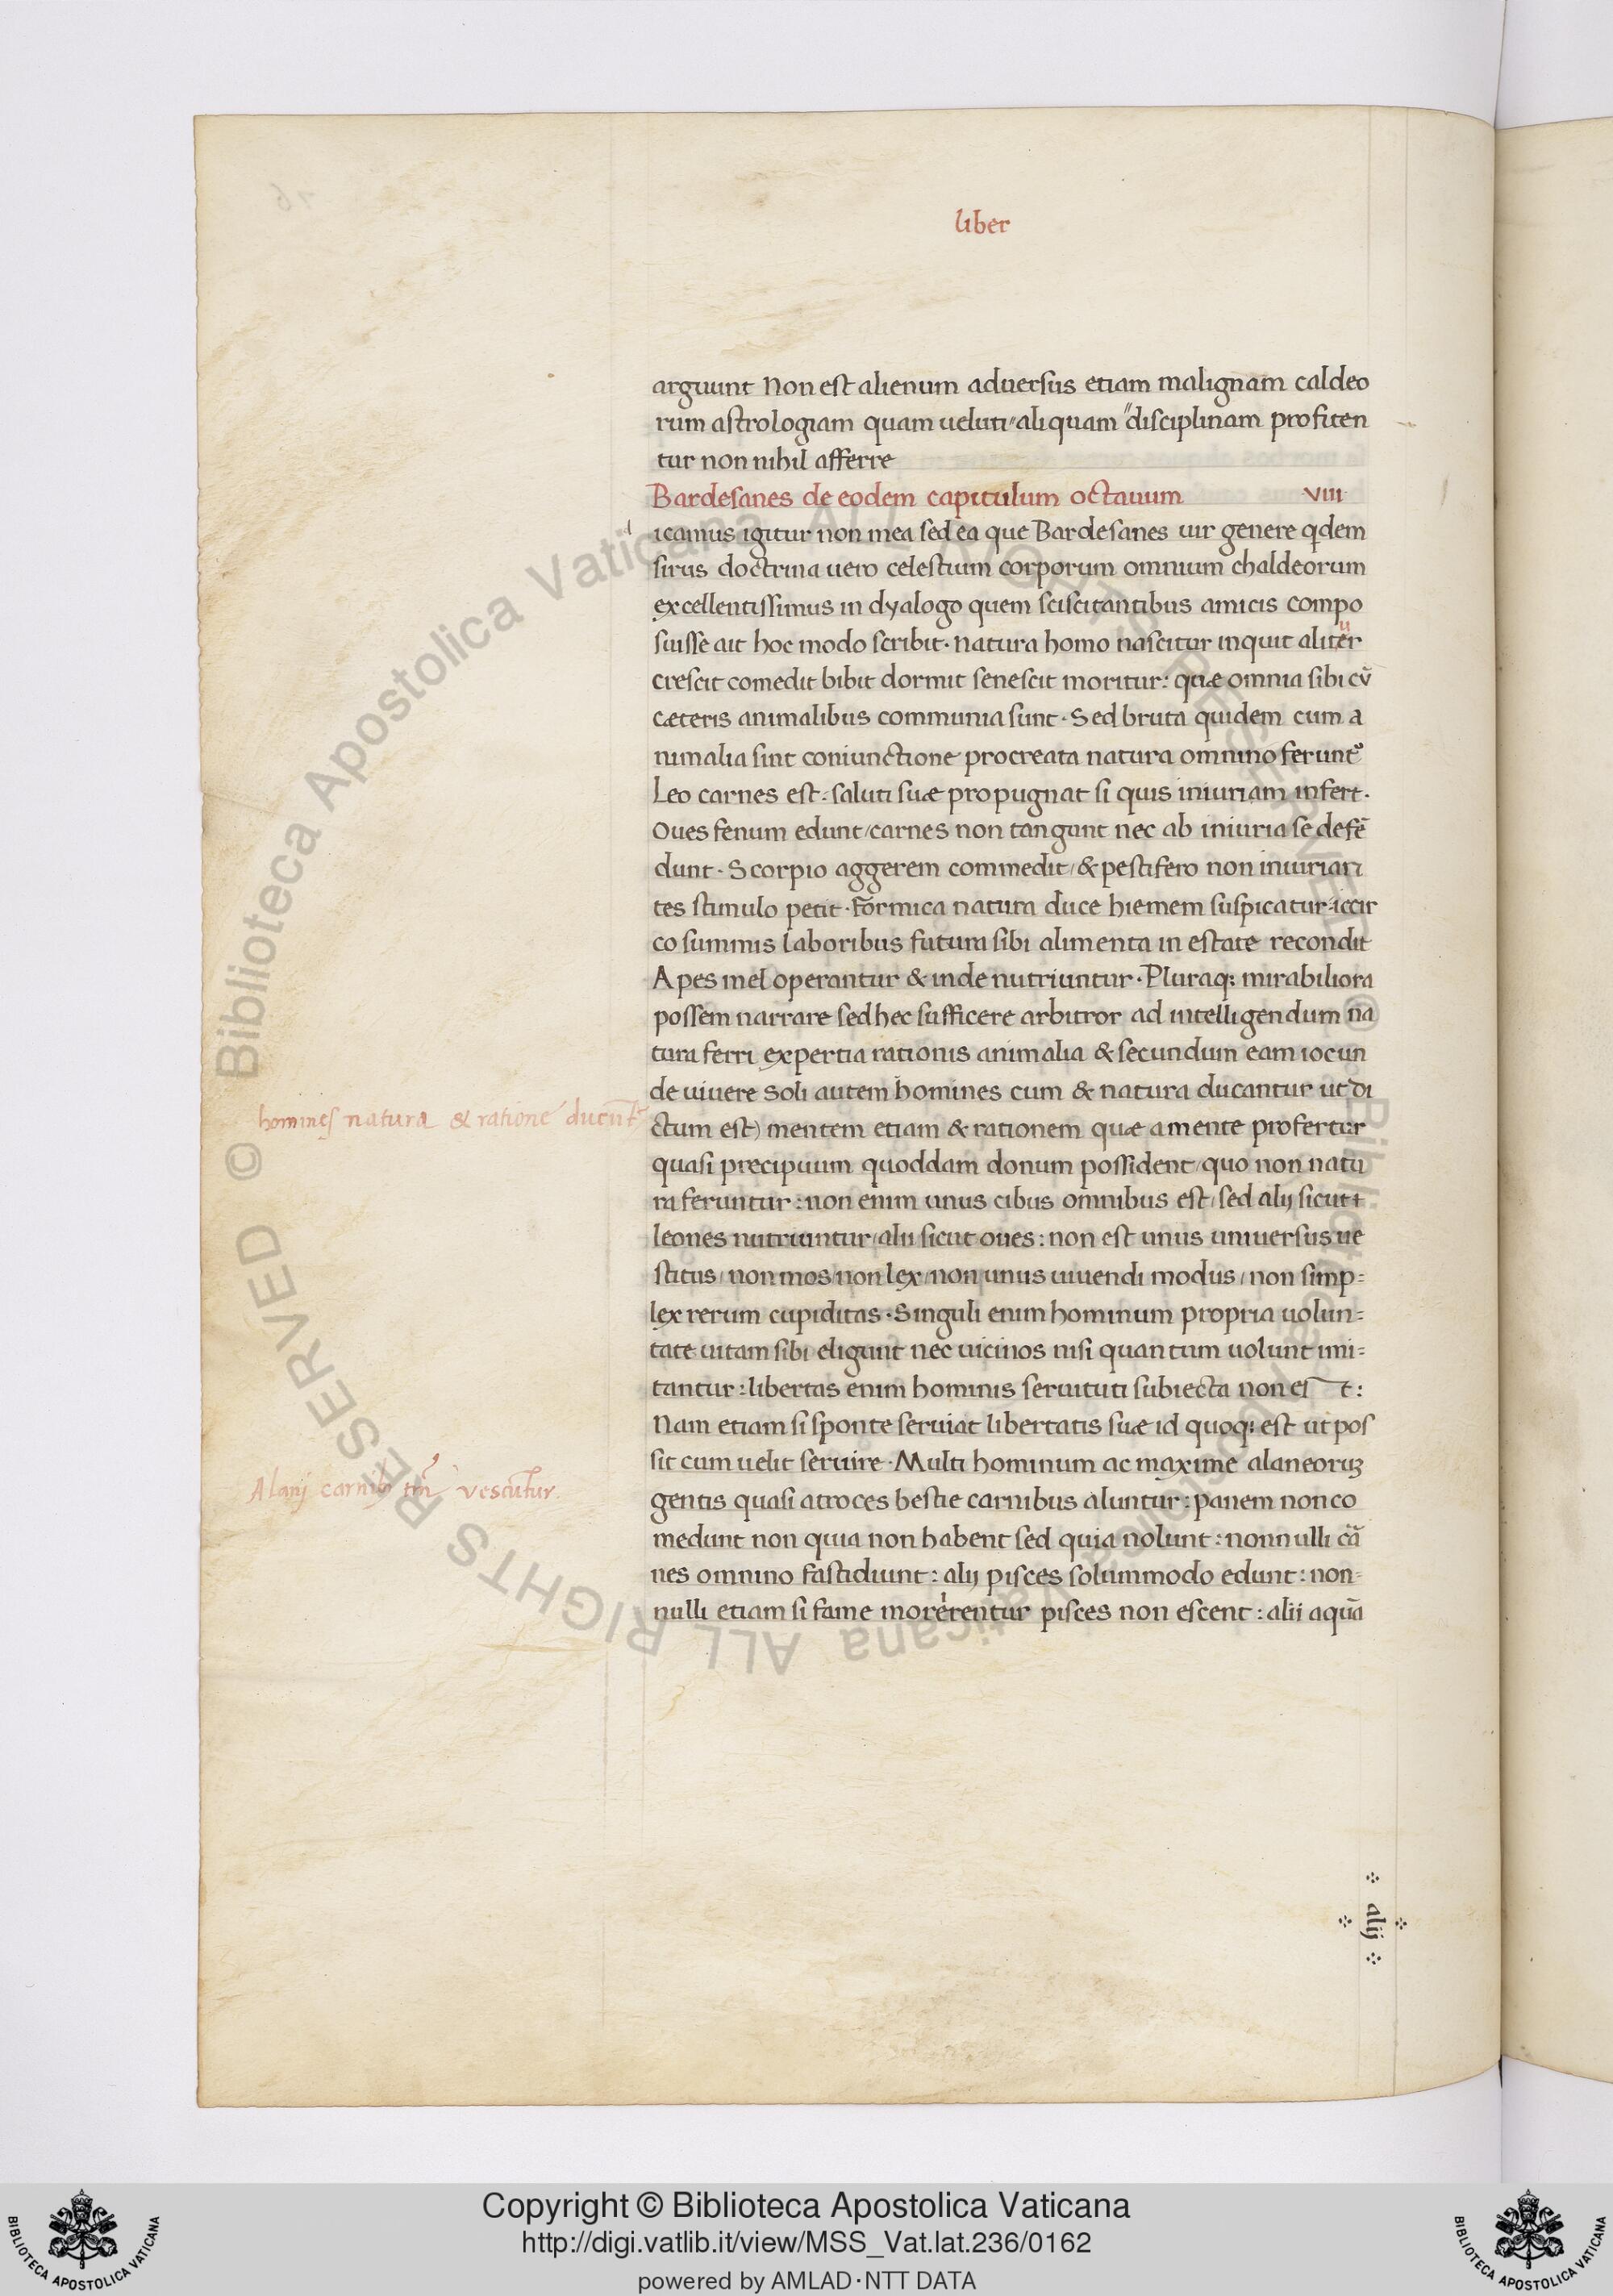 liber
arguunt Non est alienum aduersus etiam malignam caldeo
rum astrologiam quam ueluti〃aliquam〃disciplinam profiten
tur non nihil afferre
Bardesanes de eodem capitulum octauum viii
d icamus igitur non mea sed ea que Bardesanes uir genere qdem
sirus doctrina uero celestium corporum omnium chaldeorum
excellentissimus in dyalogo quem sciscitantibus amicis compo
suisse ait hoc modo scribit· natura homo nascitur inquit aliter
u
crescit comedit bibit dormit senescit moritur: quæ omnia sibi cū
cæteris animalibus communia sunt· Sed bruta quidem cum a
nimalia sint coniunctione procreata natura omnino feruntᷣ
Leo carnes est: saluti suæ propugnat si quis iniuriam infert.
Oues fenum edunt/carnes non tangunt nec ab iniuria se defē
dunt· Scorpio aggerem commedit/& pestifero non iniurian
tes stimulo petit· Formica natura duce hiemem suspicatur:iccir
co summis laboribus futura sibi alimenta in estate recondit
Apes mel operantur & inde nutriuntur· Pluraq; mirabiliora
possem narrare sed hec sufficere arbitror ad intelligendum na
tura ferri expertia rationis animalia & secundum eam iocun
de uiuere soli autem homines cum & natura ducantur ut di
homines natura & ratione ducūtᷣ
ctum est) mentem etiam & rationem quæ a mente profertur
quasi precipuum quoddam donum possident/quo non natu
ra feruntur: non enim unus cibus omnibus est/sed alij sicut
leones nutriuntur/alii sicut oues: non est unus uniuersus ue
stitus/non mos/non lex/non unus uiuendi modus/non simp=
lex rerum cupiditas· Singuli enim hominum propria uolun=
tate uitam sibi eligunt nec uicinos nisi quantum uolunt imi=
tantur: libertas enim hominis seruituti subiecta non est:
Nam etiam si sponte seruiat libertatis suæ id quoq; est ut pos
sit cum uelit seruire· Multi hominum ac maxime alaneoruꝫ
Alanj carnibꝫ tm̄ vescūtur
gentis quasi atroces bestie carnibus aluntur: panem non co
medunt non quia non habent sed quia nolunt: nonnulli cā
nes omnino fastidiunt: alij pisces solummodo edunt: non=
nulli etiam si fame morerentur pisces non escent: alii aquā
alij
© Biblioteca Apostolica Vaticana ALL RIGHTS RESERVED
© Biblioteca Apostolica Vaticana ALL RIGHTS RESERVED
BIBLIOTECA APOSTOLICA VATICANA
Copyright © Biblioteca Apostolica Vaticana
http://digi.vatlib.it/view/MSS_Vat.lat.236/0162
powered by AMLAD·NTT DATA
BIBLIOTECA APOSTOLICA VATICANA